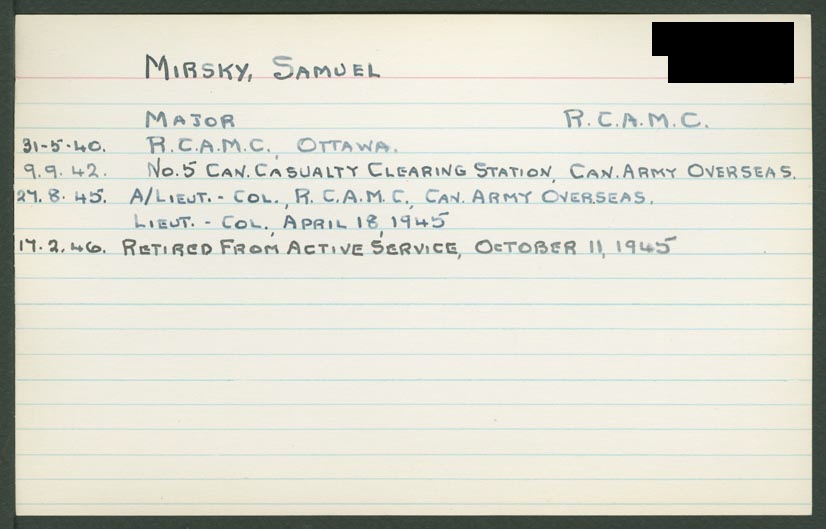 MIRSKY, SAMUEL
MAJOR R.C.A.M.C.
31-5-40. R.C.A.M.C., OTTAWA.
9.9.42. NO.5 CAN. CASUALTY CLEARING STATION, CAN. ARMY OVERSEAS.
27.8.45. A/LIEUT.-COL., R.C.A.M.C., CAN. ARMY OVERSEAS.
LIEUT.-COL., APRIL 18, 1945
17.2.46. RETIRED FROM ACTIVE SERVICE, OCTOBER 11, 1945